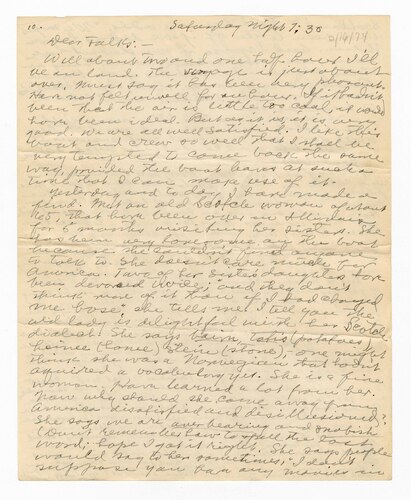 10.
Saturday Night 7:30
2/16/74
Dear Folks: -
Well about two and one half hours I'll
be on land. The voyage is just about
over. Must say it has been very pleasant.
Have not felt unwell for an hour. If it hadn't
been that the air is little too cool it would
have been ideal. But as it is, it is very
good. We are all well satisfied. I like this
boat and crew so well that I shall be
very tempted to come back the same
way, provided the boat leaves at such a
time that I can make use of it.
Yesterday and to day, I have made a
find. Met an old Scotch woman of about
65, that have been over in Illinois
for 5 months visiting her sisters. She
has been very lonesome on the boat
to talk to. She doesn't care much for
America. Two of her sisters daughters have
been devorsed twice; and they don't
think more of it than if I had changed
me hose; she tells me. I tell you the
old lady is delightful with her Scotch
dialect. She says (potatoes)
(home) (stone); one might
think she was a Norwegian that had
aquired a vocabulary. She is a fine
woman. Have learned a lot from her.
Now why should she come away from
America disatisfied and disillusioned?
She says we are over bearing and snobish
(Don't remember how to spell the last
word; hope I got it right. She says people
would say to her sometimes; I don't
suppose you have any movies in